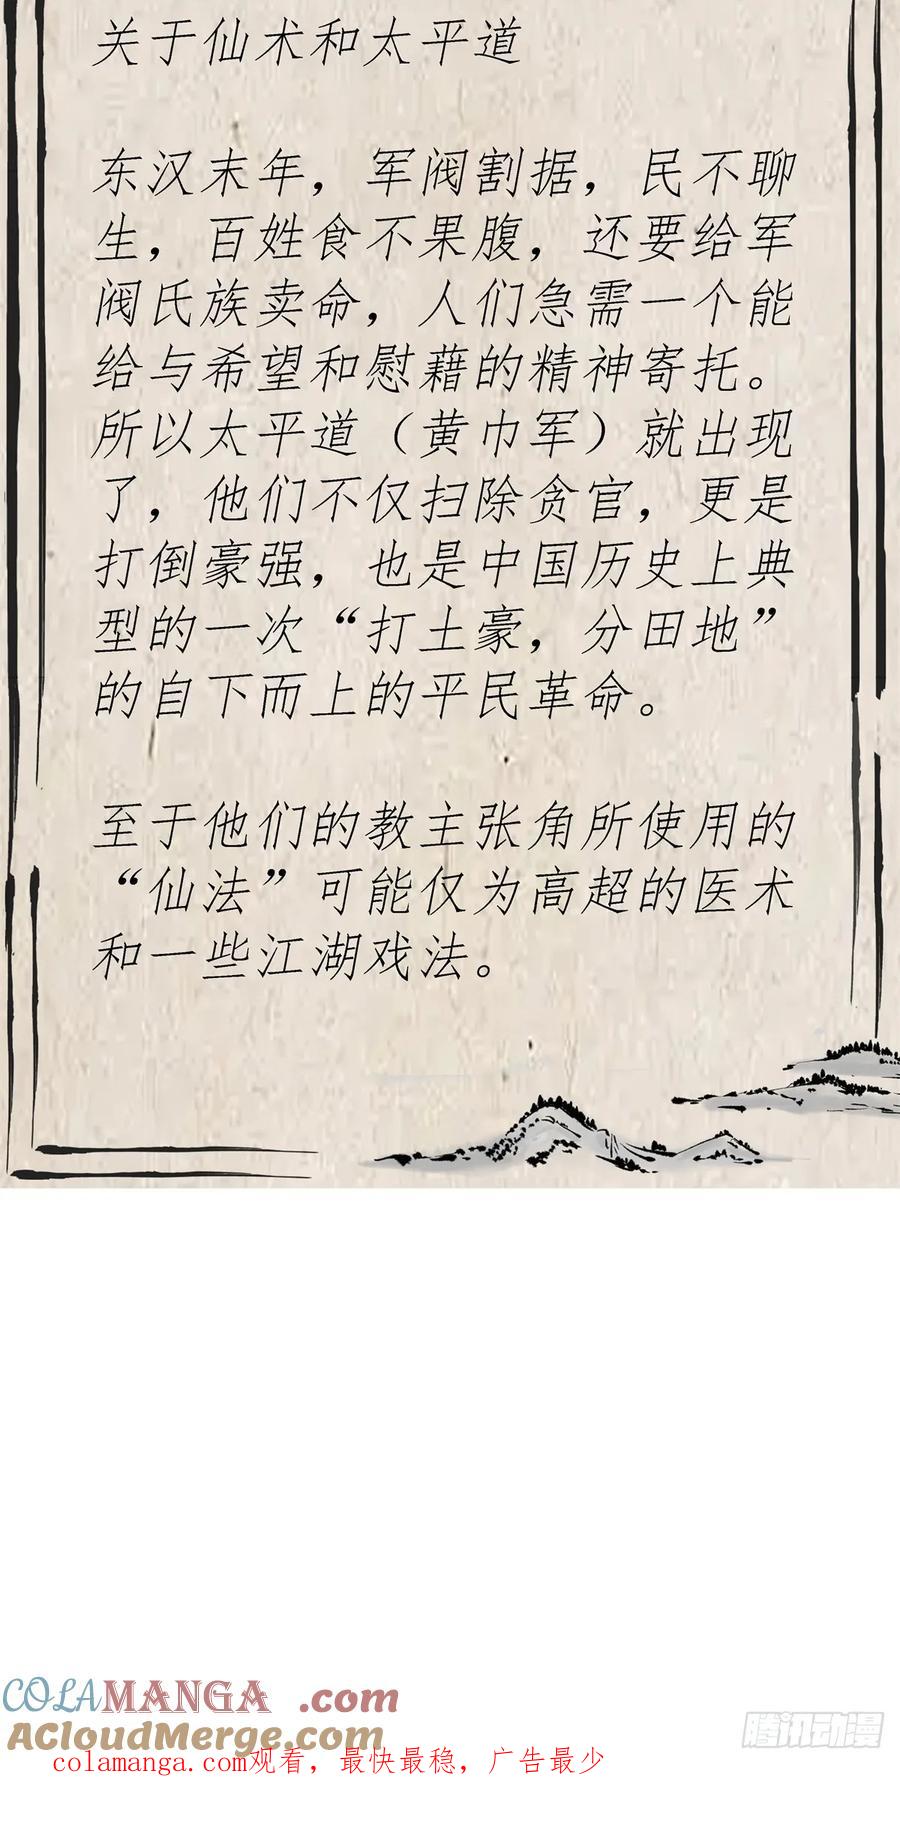 关于仙术和太平道
东汉末年，军阀割据，民不聊
生，百姓食不果腹，还要给军
阀氏族卖命，人们急需一个能
给与希望和慰藉的精神寄托。
所以太平道（黄巾军）就出现
了，他们不仅扫除贪官，更是
打倒豪强，也是中国历史上典
型的一次“打土豪，分田地”
的自下而上的平民革命。
至于他们的教主张角所使用的
“仙法”可能仅为高超的医术
和一些江湖戏法。
COLAMANGA.com
AcloudMerge.com
colamanga.com观看，最快最稳，广告最少
腾讯动漫